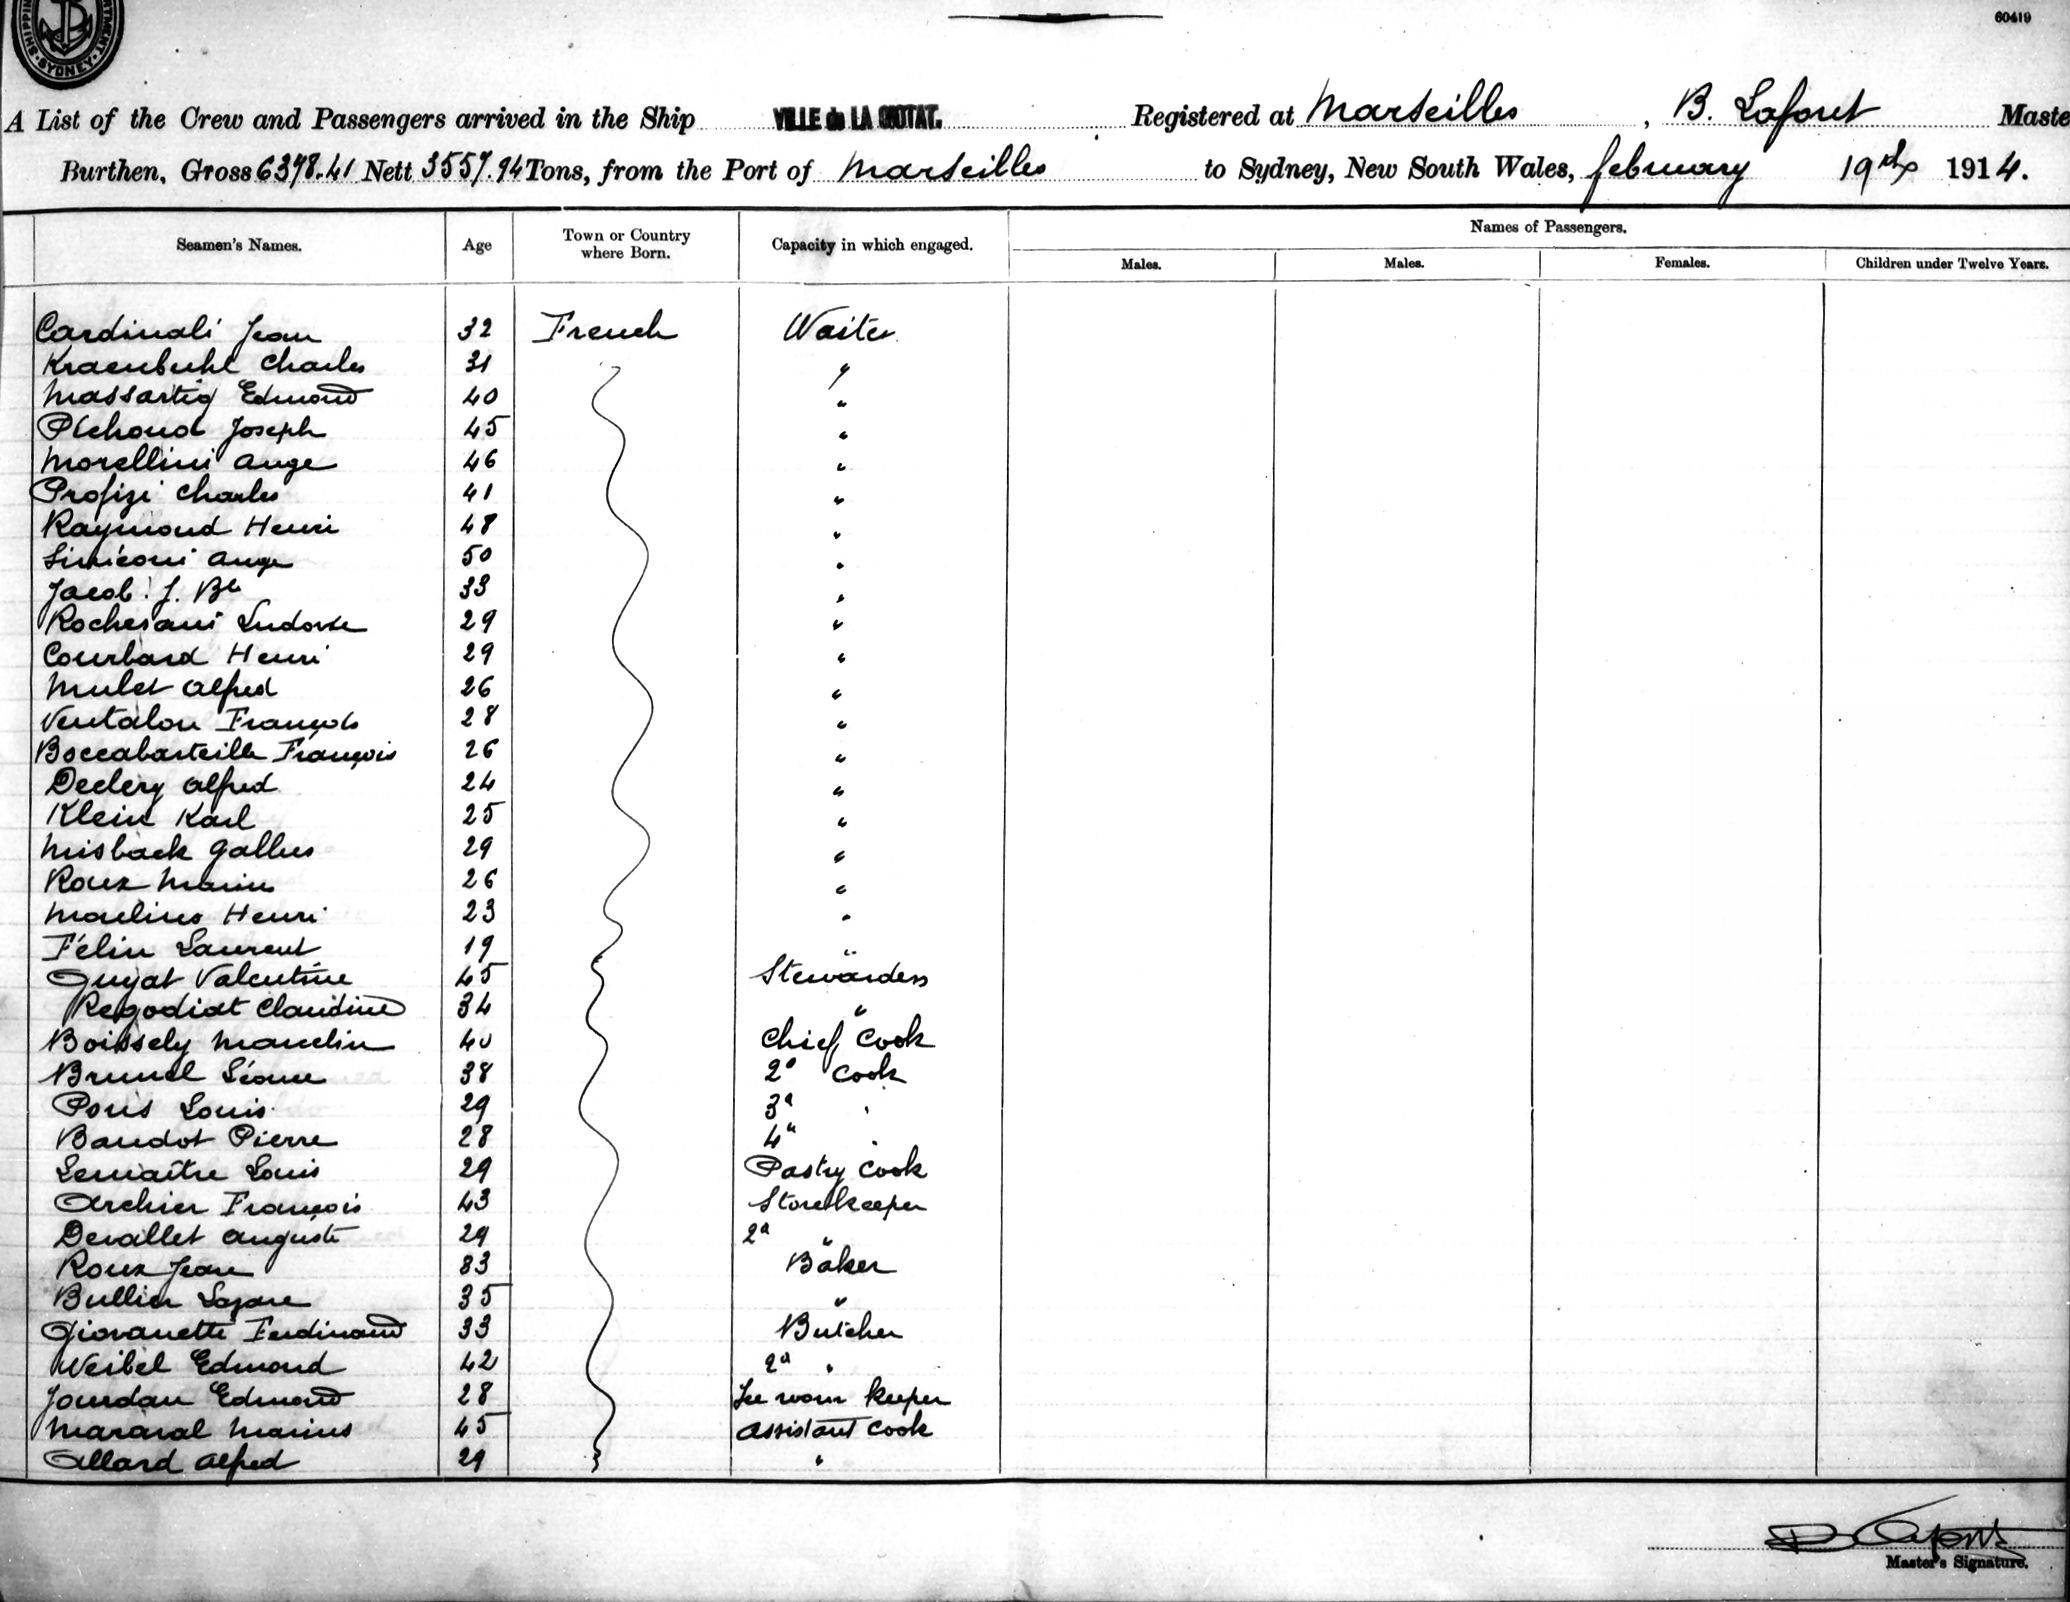 60419
SYDNEY
A List of the Crew and Passengers arrived in the Ship VILLE de LA CIOTAT. Registered at Marseilles, B. Lafont Maste
Burthen, Gross 6378.41 Nett 3557.94 Tons, from the Port of Marseilles to Sydney, New South Wales, february 19th 1914.
Names of Passengers.
Seamen's Names. Age Town or Country where Born. Capacity in which engaged. Males. Males. Females. Children under Twelve Years.
Cardinali Jean 32 French Waiter
Kraenbuhl Charles 31 "
Massartig Edmond 40 "
Pichoud Joseph 45 "
Morellini Ange 46 "
Profizi Charles 41 "
Raymond Henri 48 "
Siméoni Ange 50 "
Jacob J. Bte 33 "
Rochesani 29 "
Courbard Henri 29 "
Mulet Alfred 26 "
Ventalon François 28 "
François 26 "
Declery Alfred 24 "
Klein Karl 25 "
Misback Gallus 29 "
Roux Marius 26 "
Moulins Henri 23 "
Félin Laurent 19 "
Guyat Valentine 45 Stewardess
Regodiat Claudine 34 "
Boissely Marcelin 40 Chief Cook
Brunel Léonce 38 2d Cook
Pons Louis 29 3d "
Baudot Pierre 28 4th "
Lemaître Louis 29 Pastry Cook
Archier François 43 Storekeeper
Devallet Auguste 29 2d "
Roux Jean 33 Baker
Bullier Lazare 35 "
Giovanetti Ferdinand 33 Butcher
Weibel Edmond 42 2d "
Jourdan Edmond 28 Ice room keeper
Maraval Marius 45 Assistant Cook
Allard Alfred 29 "
B Lafont
Master's Signature.